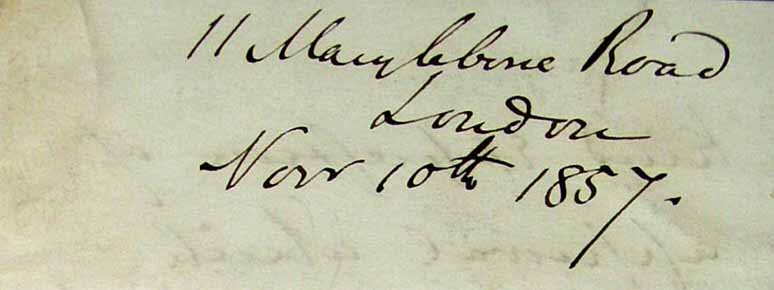 11 Marylebone Road
London
Novr 10th 1857.